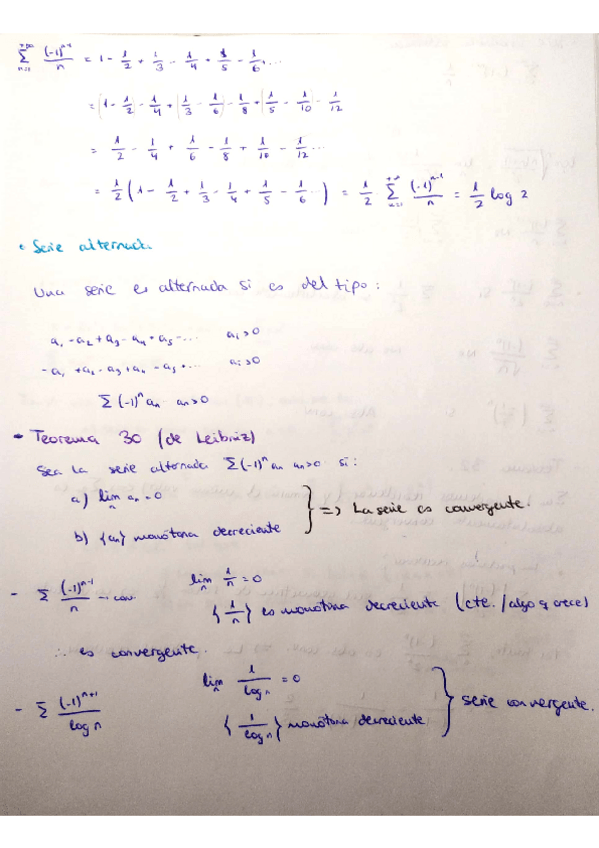 $\sum_{n=1}^{+\infty} \frac{(-1)^{n-1}}{n} = 1 - \frac{1}{2} + \frac{1}{3} - \frac{1}{4} + \frac{1}{5} - \frac{1}{6} ...$
$= \left(1 - \frac{1}{2}\right) - \frac{1}{4} + \left(\frac{1}{3} - \frac{1}{6}\right) - \frac{1}{8} + \left(\frac{1}{5} - \frac{1}{10}\right) - \frac{1}{12}$
$= \frac{1}{2} - \frac{1}{4} + \frac{1}{6} - \frac{1}{8} + \frac{1}{10} - \frac{1}{12} ...$
$= \frac{1}{2} \left(1 - \frac{1}{2} + \frac{1}{3} - \frac{1}{4} + \frac{1}{5} - \frac{1}{6} ...\right) = \frac{1}{2} \sum_{n=1}^{+\infty} \frac{(-1)^{n-1}}{n} = \frac{1}{2} \log 2$
• Serie alternada
Una serie es alternada si es del tipo:
a₁ - a₂ + a₃ - a₄ + a₅ - ... aᵢ > 0
-a₁ + a₂ - a₃ + a₄ - a₅ + ... aᵢ > 0
Σ (-1)ⁿ aₙ aₙ > 0
- Teorema 30 (de Leibniz)
Sea la serie alternada Σ(-1)ⁿ aₙ aₙ > 0 si:
a) lim aₙ = 0
b) {aₙ} monótona decreciente } => La serie es convergente.
- $\sum \frac{(-1)^{n-1}}{n}$ → conv. $\lim_n \frac{1}{n} = 0$
$\{\frac{1}{n}\}$ es monótona decreciente (cte. / algo q crece)
∴ es convergente.
- $\sum \frac{(-1)^{n+1}}{\log n}$ $\lim_n \frac{1}{\log n} = 0$
$\{\frac{1}{\log n}\}$ monótona decreciente } serie convergente.